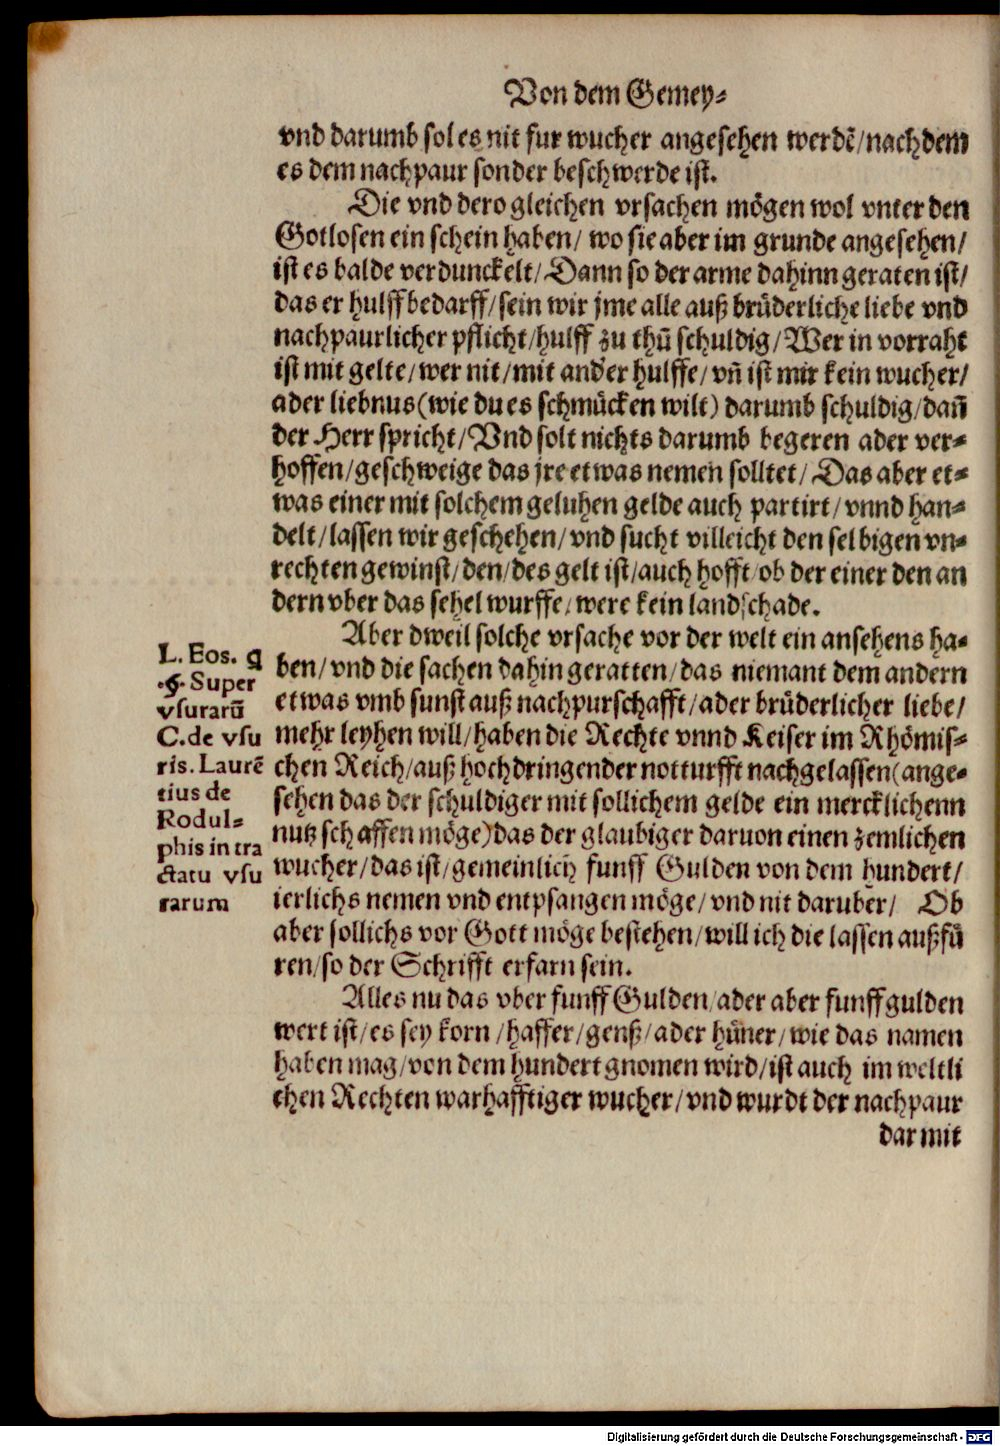 Von dem Gemey⸗
vnd darumb sol es nit fur wucher angesehen werdē/nach dem
es dem nachpaur sonder beschwerde ist.
Die vnd dero gleichen vrsachen mögen wol vnter den
Gotlosen ein schein haben/ wo sie aber im grunde angesehen/
ist es balde verdunckelt/ Dann so der arme dahinn geraten ist/
das er hulff bedarff/sein wir jme alle auß brüderliche liebe vnd
nachpaurlicher pflicht/hulff zu thū schuldig/Wer in vorraht
ist mit gelte/wer nit/mit ander hulffe/vn̄ ist mir kein wucher/
ader liebnus(wie du es schmücken wilt) darumb schuldig/dan̄
der Herr spricht/Vnd solt nichts darumb begeren ader ver⸗
hoffen/geschweige das jre etwas nemen solltet/ Das aber et⸗
was einer mit solchem geluhen gelde auch partirt/vnnd han⸗
delt/lassen wir geschehen/vnd sucht villeicht den selbigen vn⸗
rechten gewinst/den/des gelt ist/auch hofft/ob der einer den an
dern vber das sehel wurffe/were kein landschade.
Aber dweil solche vrsache vor der welt ein ansehens ha⸗
ben/vnd die sachen dahin geratten/das niemant dem andern
etwas vmb sunst auß nachpurschafft/ader brüderlicher liebe/
mehr leyhen will/haben die Rechte vnnd Keiser im Rhömis⸗
chen Reich/auß hochdringender notturfft nachgelassen(ange⸗
sehen das der schuldiger mit sollichem gelde ein mercklichenn
nutz schaffen möge)das der glaubiger daruon einen zemlichen
wucher/das ist/gemeinlich funff Gulden von dem hundert/
ierlichs nemen vnd entpfangen möge/vnd nit daruber/ Ob
aber sollichs vor Gott möge bestehen/will ich die lassen außfü
ren/so der Schrifft erfarn sein.
L. Eos. q
.§. Super
vsurarū
C. de vsu
ris. Laurē
tius de
Rodul⸗
phis in tra
ctatu vsu
rarum
Alles nu das vber funff Gulden/ader aber funff gulden
wert ist/es sey korn/haffer/genß/ader hüner/wie das namen
haben mag/von dem hundert gnomen wird/ist auch im weltli
chen Rechten warhafftiger wucher/vnd wurdt der nachpaur
dar mit
Digitalisierung gefördert durch die Deutsche Forschungsgemeinschaft - DFG